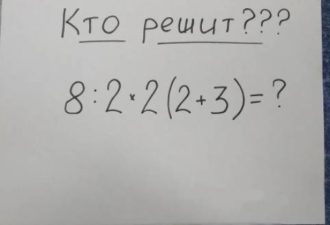 Кто решит???
8:2*2(2+3)=?